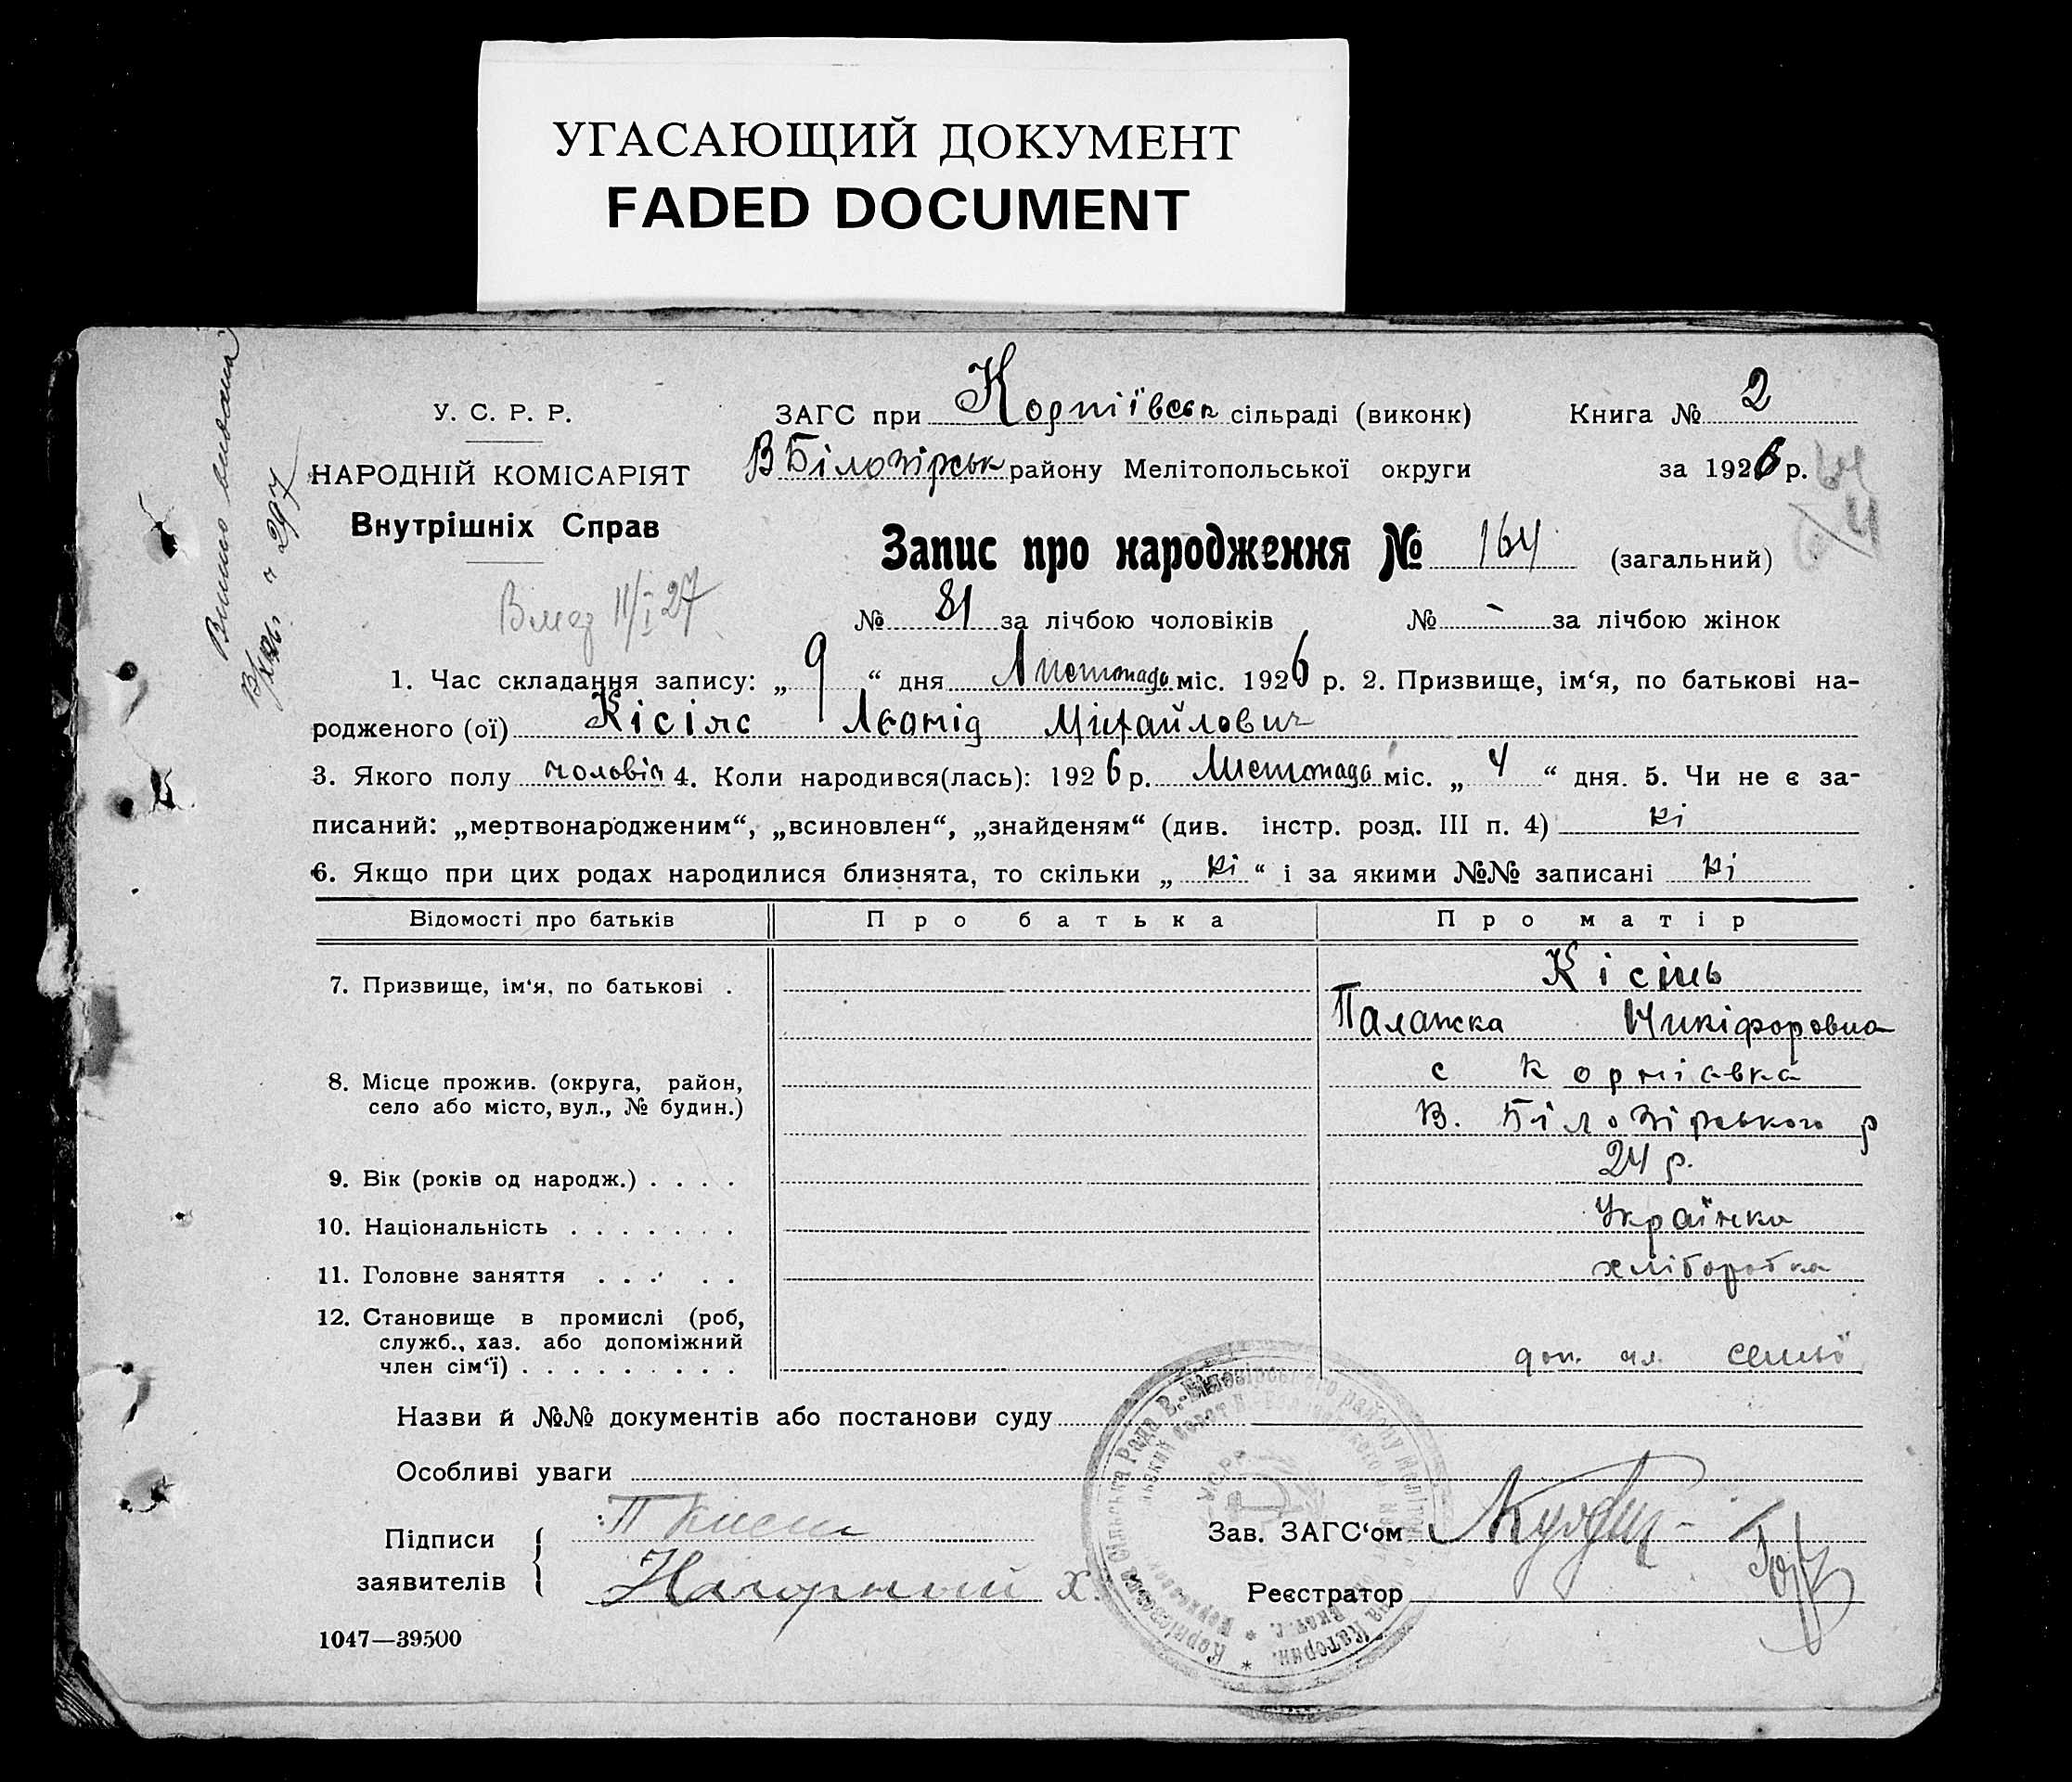 УГАСАЮЩИЙ ДОКУМЕНТ
FADED DOCUMENT
У. С. Р. Р.
НАРОДНІЙ КОМІСАРІЯТ
Внутрішніх Справ
ЗАГС при Корніївськ сільраді (виконк)
Книга № 2
В Білозірськ району Мелітопольської округи
за 1926 р.
Запис про народження № 164 (загальний)
11/I 27
№ 81 за лічбою чоловіків № - за лічбою жінок
1. Час складання запису: „ 9 “ дня Листопада міс. 1926 р. 2. Призвище, ім‘я, по батькові на-
родженого (ої) Леонід Михайлович
3. Якого полу чоловік 4. Коли народився(лась): 1926 р. Листопада міс. „ 4 “ дня. 5. Чи не є за-
писаний: „мертвонародженим“, „всиновлен“, „знайденям“ (див. інстр. розд. III п. 4) ні
6. Якщо при цих родах народилися близнята, то скільки „ ні “ і за якими №№ записані ні
Відомості про батьків
Про батька
Про матір
7. Призвище, ім‘я, по батькові .
Кісінь
Палажка Никіфоровна
8. Місце прожив. (округа, район,
село або місто, вул., № будин.)
с Корніевка
В. Білозірського р
9. Вік (років од народж.) . . . .
24 р.
10. Національність . . . . . . .
Українка
11. Головне заняття . . . . .
хліборобка
12. Становище в промислі (роб,
служб., хаз. або допоміжний
член сім‘ї) . . . . . . . . .
доп. чл. семьї
Назви й №№ документів або постанови суду
Особливі уваги
Підписи
заявителів
Нагорный Х.
Зав. ЗАГС‘ом
Реєстратор
1047—39500